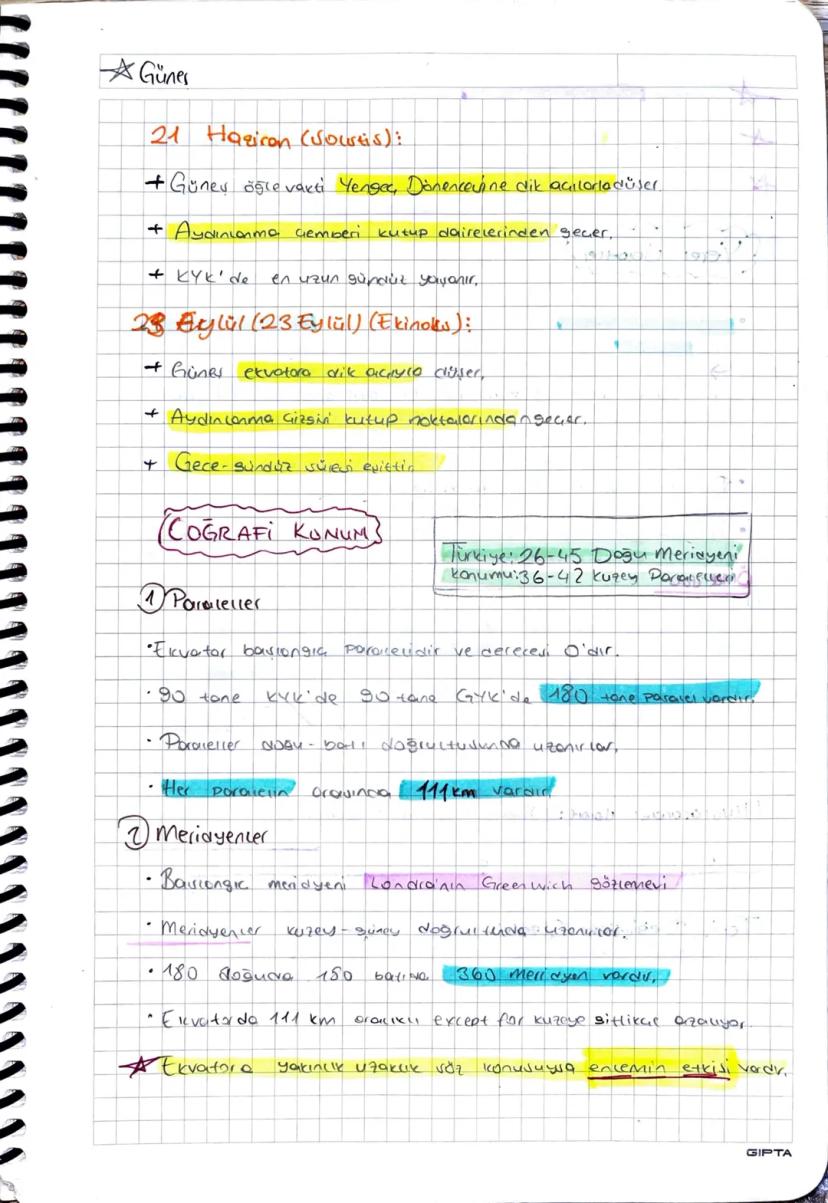 ☆ Güneş
21 Haziran (Solstis):
+ Güneş öğle vakti Yengeç Dönencesine dik açılarla düşer.
+ Aydınlanma çemberi kutup dairelerinden geçer.
+ KYK'de en uzun gündüz yaşanır.
23 Eylül (23 Eylül) (Ekinoks):
+ Güneş ekvatora dik açıyla düşer.
+ Aydınlanma çizgisi kutup noktalarından geçer.
+ Gece-gündüz süresi eşittir
COĞRAFİ KONUM
Türkiye: 26-45 Doğu Meridyeni
konumu: 36-42 kuzey Paralelleri
1 Paraleller
• Ekvator başlangıç paralelidir ve derecesi 0'dır.
• 90 tane KYK'de 90 tane GYK'de 180 tane paralel vardır.
• Paraleller doğu-batı doğrultusunda uzanırlar.
• Her paralelin arasında 111 km vardır
2 Meridyenler
• Başlangıç meridyeni Londra'nın Greenwich gözlemevi
• Meridyenler kuzey-güney doğrultunda uzanırlar.
• 180 doğuda 180 batıda 360 meridyen vardır.
• Ekvatorda 111 km aralıklı except for kuzeye gittikçe azalıyor.
☆ Ekvatora yakınlık uzaklık söz konusuysa enlemin etkisi vardır.
GIPTA